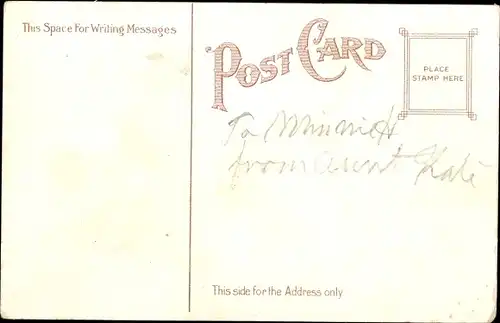 This Space For Writing Messages
POST CARD
PLACE
STAMP HERE
To Minnie H
from Aunt Kate
This side for the Address only